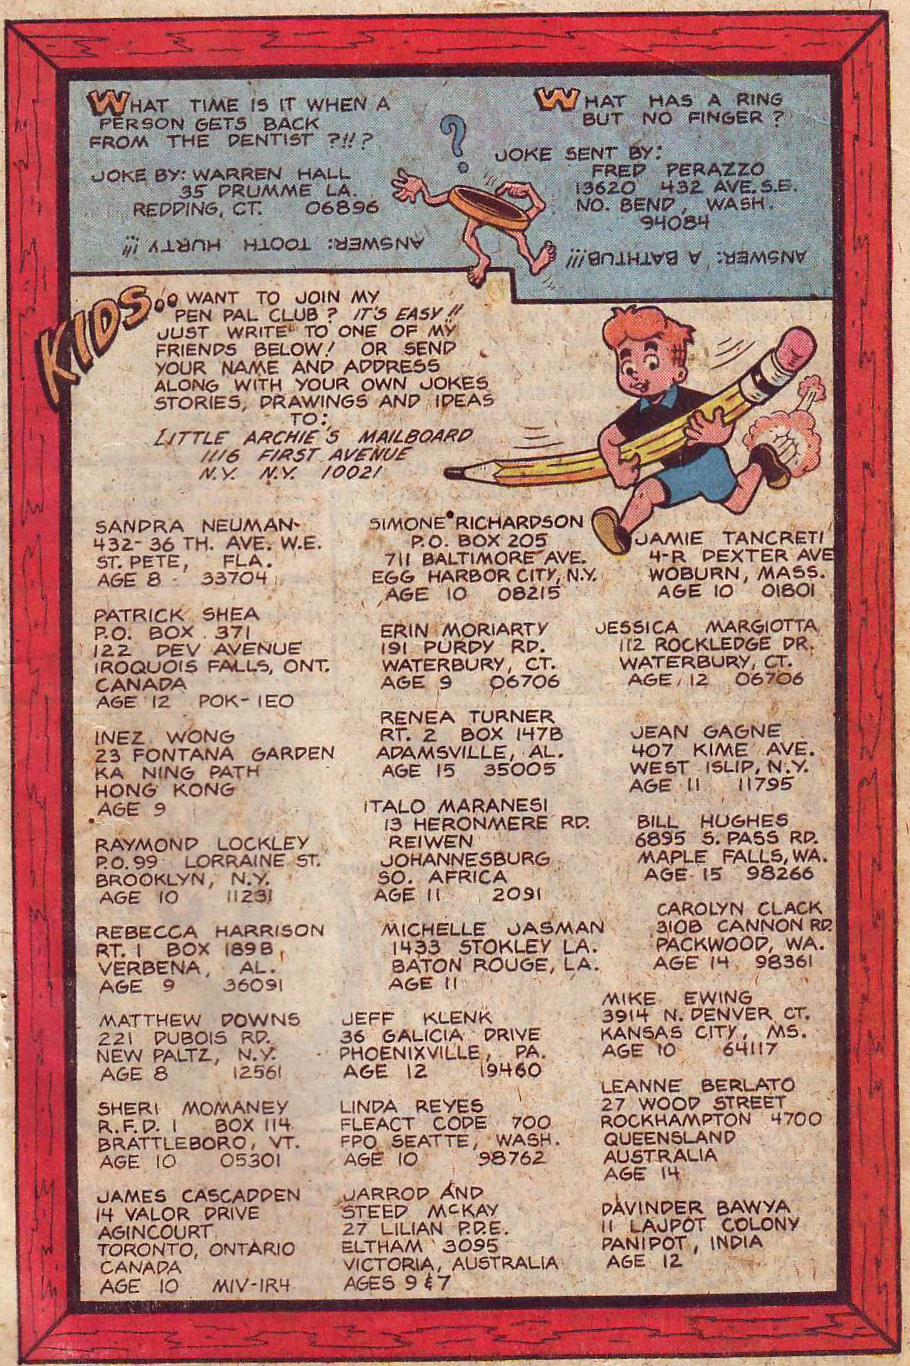 WHAT TIME IS IT WHEN A
PERSON GETS BACK
FROM THE DENTIST ?!!?
JOKE BY: WARREN HALL
35 DRUMME LA.
REDDING, CT. 06896
ANSWER: TOOTH HURTY !!!
?
WHAT HAS A RING
BUT NO FINGER ?
JOKE SENT BY:
FRED PERAZZO
13620 432 AVE. S.E.
NO. BEND, WASH.
94084
ANSWER: A BATHTUB!!!
KIDS.. WANT TO JOIN MY
PEN PAL CLUB? IT'S EASY!!
JUST WRITE TO ONE OF MY
FRIENDS BELOW! OR SEND
YOUR NAME AND ADDRESS
ALONG WITH YOUR OWN JOKES
STORIES, DRAWINGS AND IDEAS
TO:
LITTLE ARCHIE'S MAILBOARD
1116 FIRST AVENUE
N.Y. N.Y. 10021
SANDRA NEUMAN
432-36 TH. AVE. W.E.
ST. PETE, FLA.
AGE 8 33704
PATRICK SHEA
P.O. BOX 371
122 DEV AVENUE
IROQUOIS FALLS, ONT.
CANADA
AGE 12 POK-IEO
INEZ WONG
23 FONTANA GARDEN
KA NING PATH
HONG KONG
AGE 9
RAYMOND LOCKLEY
P.O. 99 LORRAINE ST.
BROOKLYN, N.Y.
AGE 10 11231
REBECCA HARRISON
RT. 1 BOX 189B
VERBENA, AL.
AGE 9 36091
MATTHEW DOWNS
221 DUBOIS RD.
NEW PALTZ, N.Y.
AGE 8 12561
SHERI MOMANEY
R.F.D. 1 BOX 114
BRATTLEBORO, VT.
AGE 10 05301
JAMES CASCADDEN
14 VALOR DRIVE
AGINCOURT
TORONTO, ONTARIO
CANADA
AGE 10 MIV-IR4
SIMONE RICHARDSON
P.O. BOX 205
711 BALTIMORE AVE.
EGG HARBOR CITY, N.Y.
AGE 10 08215
ERIN MORIARTY
191 PURDY RD.
WATERBURY, CT.
AGE 9 06706
RENEA TURNER
RT. 2 BOX 147B
ADAMSVILLE, AL.
AGE 15 35005
ITALO MARANESI
13 HERONMERE RD.
REIWEN
JOHANNESBURG
SO. AFRICA
AGE 11 2091
MICHELLE JASMAN
1433 STOKLEY LA.
BATON ROUGE, LA.
AGE 11
JEFF KLENK
36 GALICIA DRIVE
PHOENIXVILLE, PA.
AGE 12 19460
LINDA REYES
FLEACT CODE 700
FPO SEATTE, WASH.
AGE 10 98762
JARROD AND
STEED McKAY
27 LILIAN P.D.E.
ELTHAM 3095
VICTORIA, AUSTRALIA
AGES 9 & 7
JAMIE TANCRETI
4-R DEXTER AVE
WOBURN, MASS.
AGE 10 01801
JESSICA MARGIOTTA
112 ROCKLEDGE DR.
WATERBURY, CT.
AGE 12 06706
JEAN GAGNE
407 KIME AVE.
WEST ISLIP, N.Y.
AGE 11 11795
BILL HUGHES
6895 S. PASS RD.
MAPLE FALLS, WA.
AGE 15 98266
CAROLYN CLACK
310B CANNON RD
PACKWOOD, WA.
AGE 14 98361
MIKE EWING
3914 N. DENVER CT.
KANSAS CITY, MS.
AGE 10 64117
LEANNE BERLATO
27 WOOD STREET
ROCKHAMPTON 4700
QUEENSLAND
AUSTRALIA
AGE 14
DAVINDER BAWYA
11 LAJPOT COLONY
PANIPOT, INDIA
AGE 12